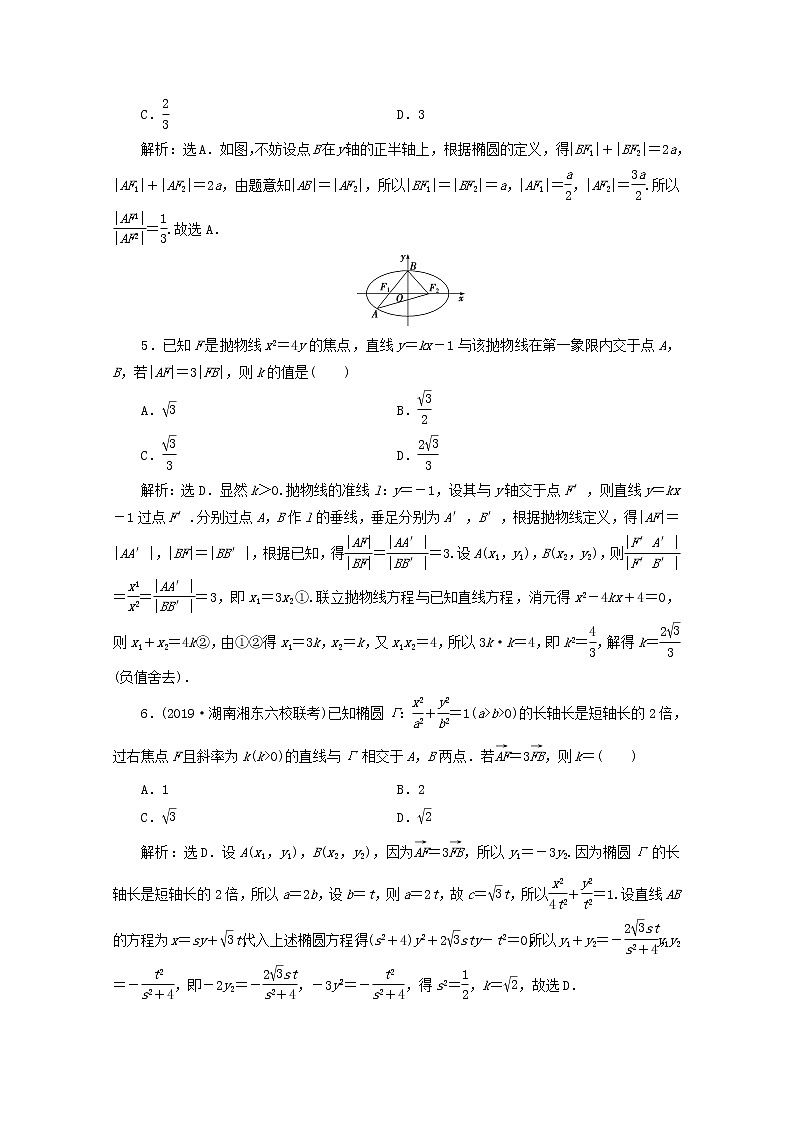 C.2/3  D.3
解析:选A.如图,不妨设点B在y轴的正半轴上,根据椭圆的定义,得|BF₁|+|BF₂|=2a,
|AF₁|+|AF₂|=2a,由题意知|AB|=|AF₂|,所以|BF₁|=|BF₂|=a,|AF₁|=a/2,|AF₂|=3a/2.所以
|AF¹|/|AF²|=1/3.故选A.
y
B
F₁
F₂
O
x
A
5.已知F是抛物线x²=4y的焦点,直线y=kx-1与该抛物线在第一象限内交于点A,
B,若|AF|=3|FB|,则k的值是(  )
A.√3  B.√3/2
C.√3/3  D.2√3/3
解析:选D.显然k>0.抛物线的准线l:y=-1,设其与y轴交于点F′,则直线y=kx
-1过点F′.分别过点A,B作l的垂线,垂足分别为A′,B′,根据抛物线定义,得|AF|=
|AA′|,|BF|=|BB′|,根据已知,得|AF|/|BF|=|AA′|/|BB′|=3.设A(x₁,y₁),B(x₂,y₂),则|F′A′|/|F′B′|
=x¹/x²=|AA′|/|BB′|=3,即x₁=3x₂①.联立抛物线方程与已知直线方程,消元得x²-4kx+4=0,
则x₁+x₂=4k②,由①②得x₁=3k,x₂=k,又x₁x₂=4,所以3k·k=4,即k²=4/3,解得k=2√3/3
(负值舍去).
6.(2019·湖南湘东六校联考)已知椭圆Γ:x²/a²+y²/b²=1(a>b>0)的长轴长是短轴长的2倍,
过右焦点F且斜率为k(k>0)的直线与Γ相交于A,B两点.若AF→=3FB→,则k=(  )
A.1  B.2
C.√3  D.√2
解析:选D.设A(x₁,y₁),B(x₂,y₂),因为AF→=3FB→,所以y₁=-3y₂.因为椭圆Γ的长
轴长是短轴长的2倍,所以a=2b,设b=t,则a=2t,故c=√3t,所以x²/4t²+y²/t²=1.设直线AB
的方程为x=sy+√3t代入上述椭圆方程,得(s²+4)y²+2√3sty-t²=0,所以y₁+y₂=-2√3st/s²+4,y₁y₂
=-t²/s²+4,即-2y₂=-2√3st/s²+4,-3y²=-t²/s²+4,得s²=1/2,k=√2,故选D.